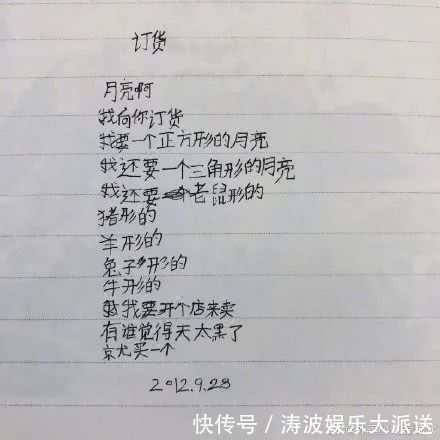 订货
月亮啊
我向你订货
我要一个正方形的月亮
我还要一个三角形的月亮
我还要一个老鼠形的
猪形的
羊形的
兔子形的
牛形的
我要开个店来卖
有谁觉得天太黑了
京尤买一个
2012.9.28
快传号/涛波娱乐大派送